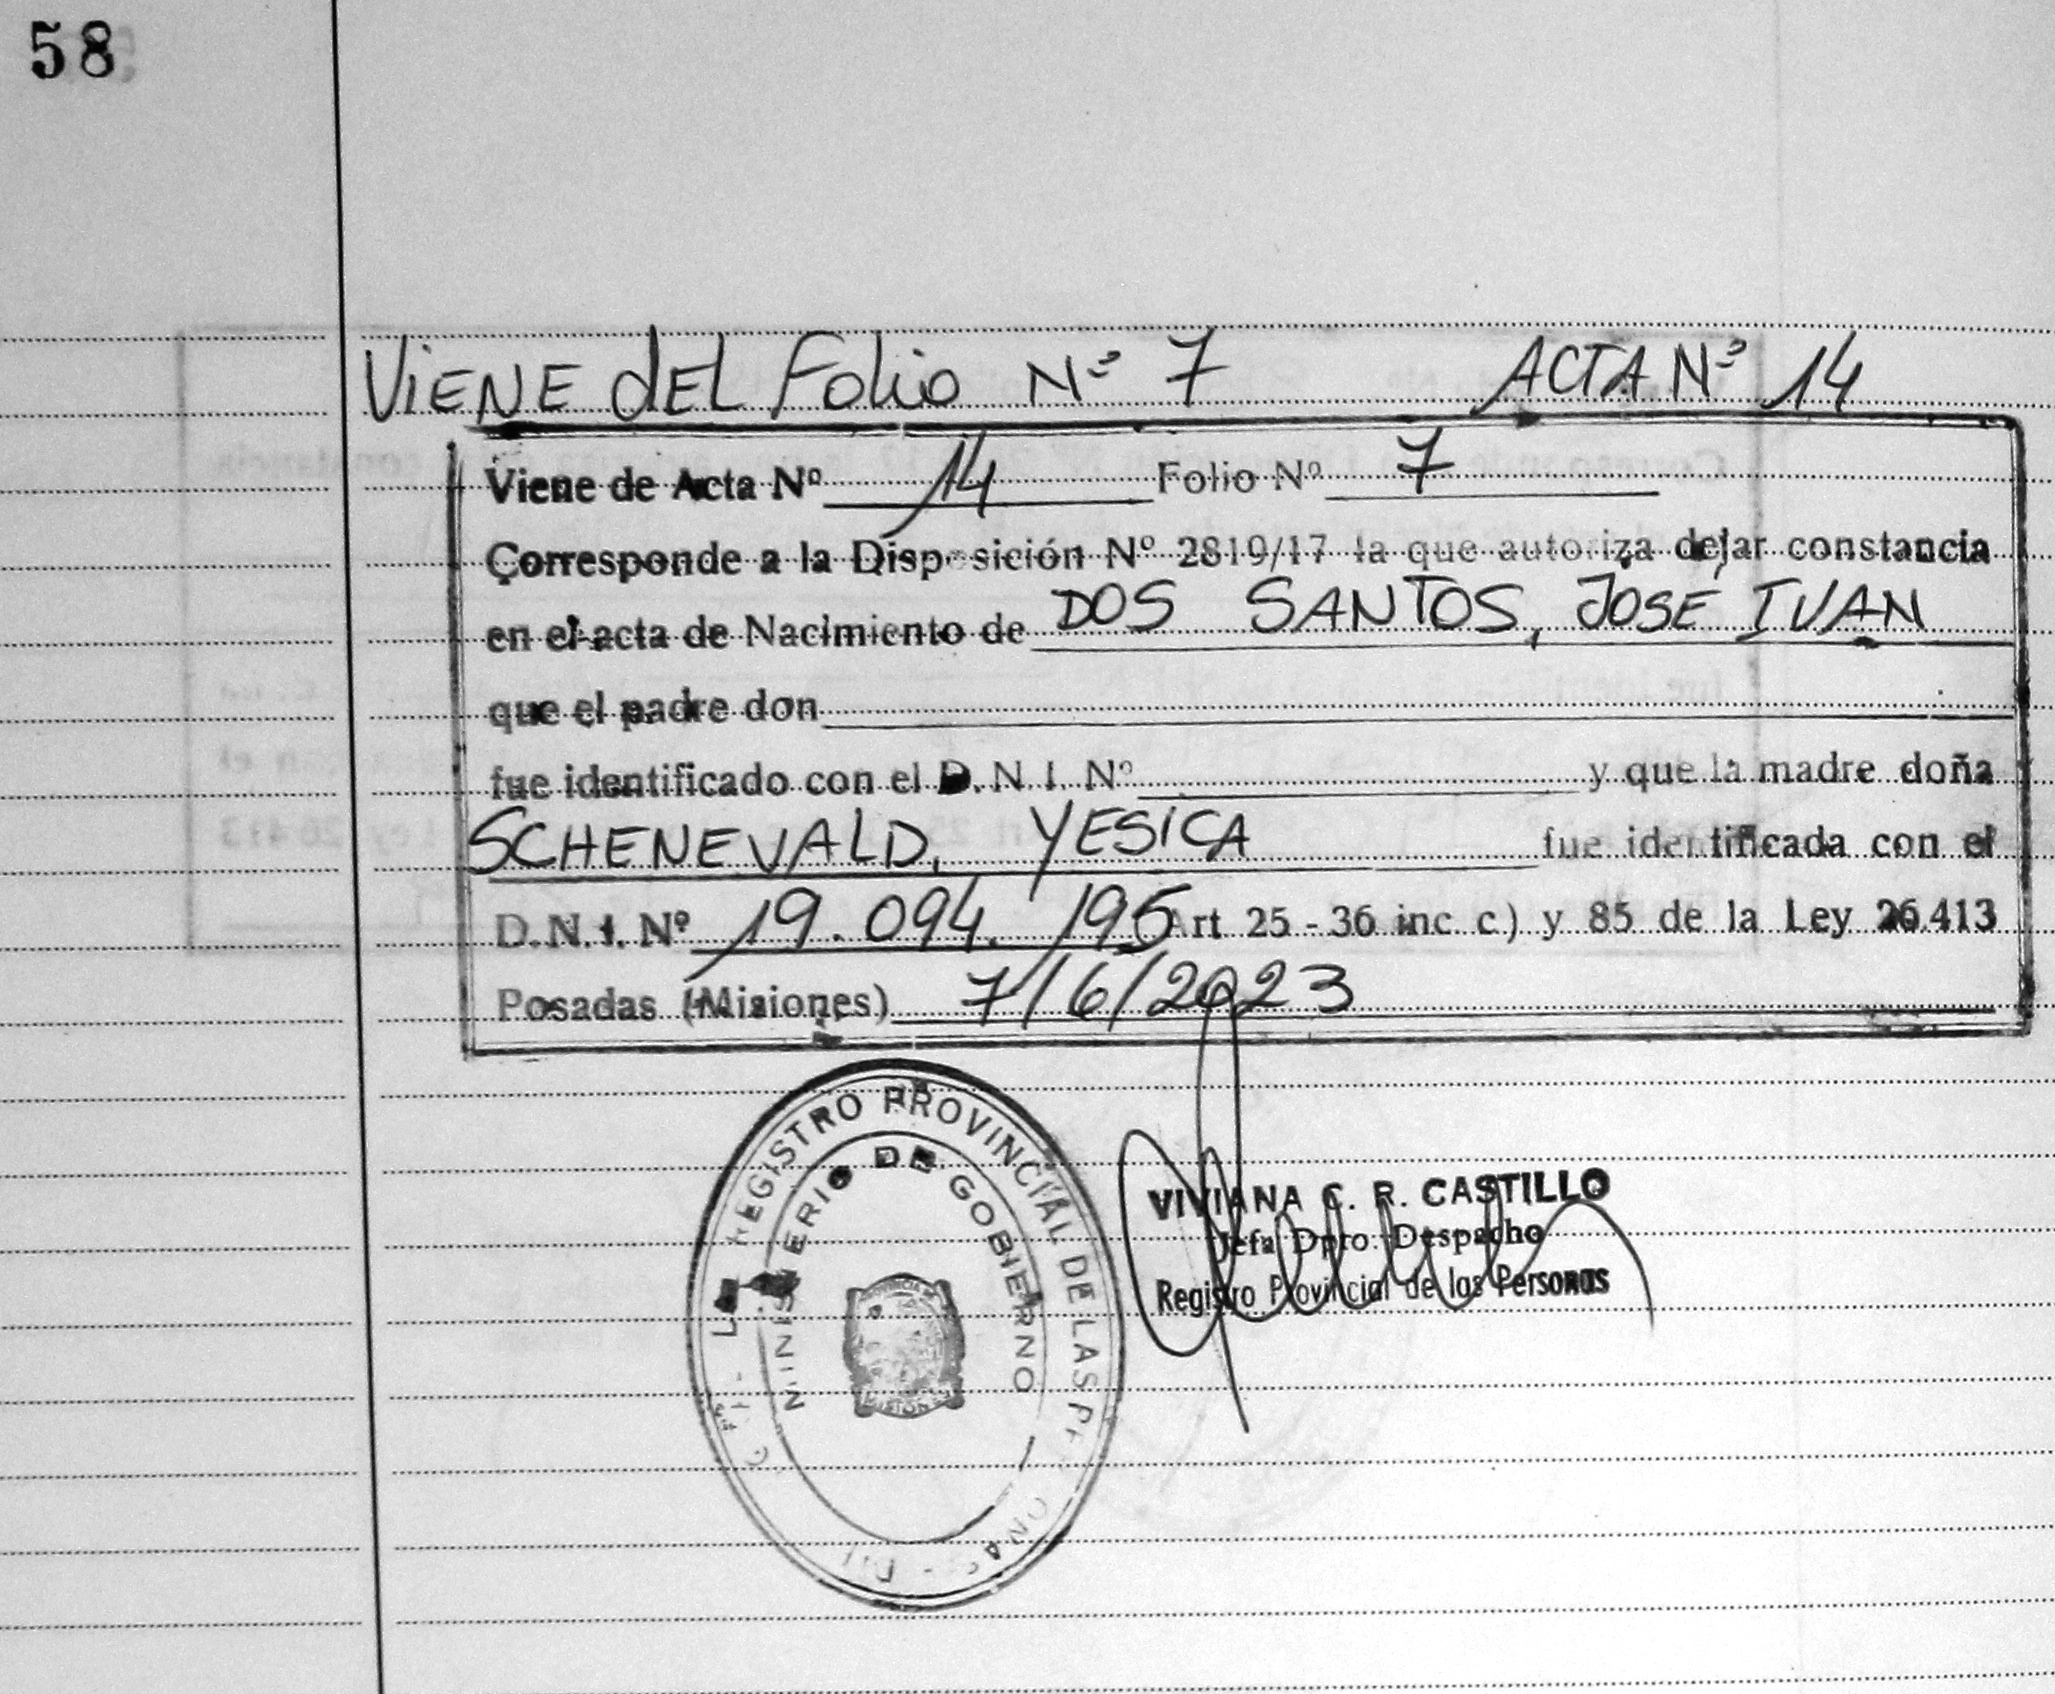 58
VIENE dEL FOLIO Nº 7 ACTA Nº 14
Viene de Acta Nº 14 Folio Nº 7
Corresponde a la Disposición Nº 2819/17 la que autoriza dejar constancia
en el acta de Nacimiento de DOS SANTOS, JOSÉ IVAN
que el padre don
fue identificado con el D.N.I. Nº y que la madre doña
SCHENEVALD, YESICA fue identificada con el
D.N.I. Nº 19.094.195 Art 25 - 36 inc c.) y 85 de la Ley 26.413
Posadas (Misiones) 7/6/2023
REGISTRO PROVINCIAL DE LAS
MINISTERIO DE GOBIERNO
VIVIANA C. R. CASTILLO
Jefa Dpto. Despacho
Registro Provincial de las Personas